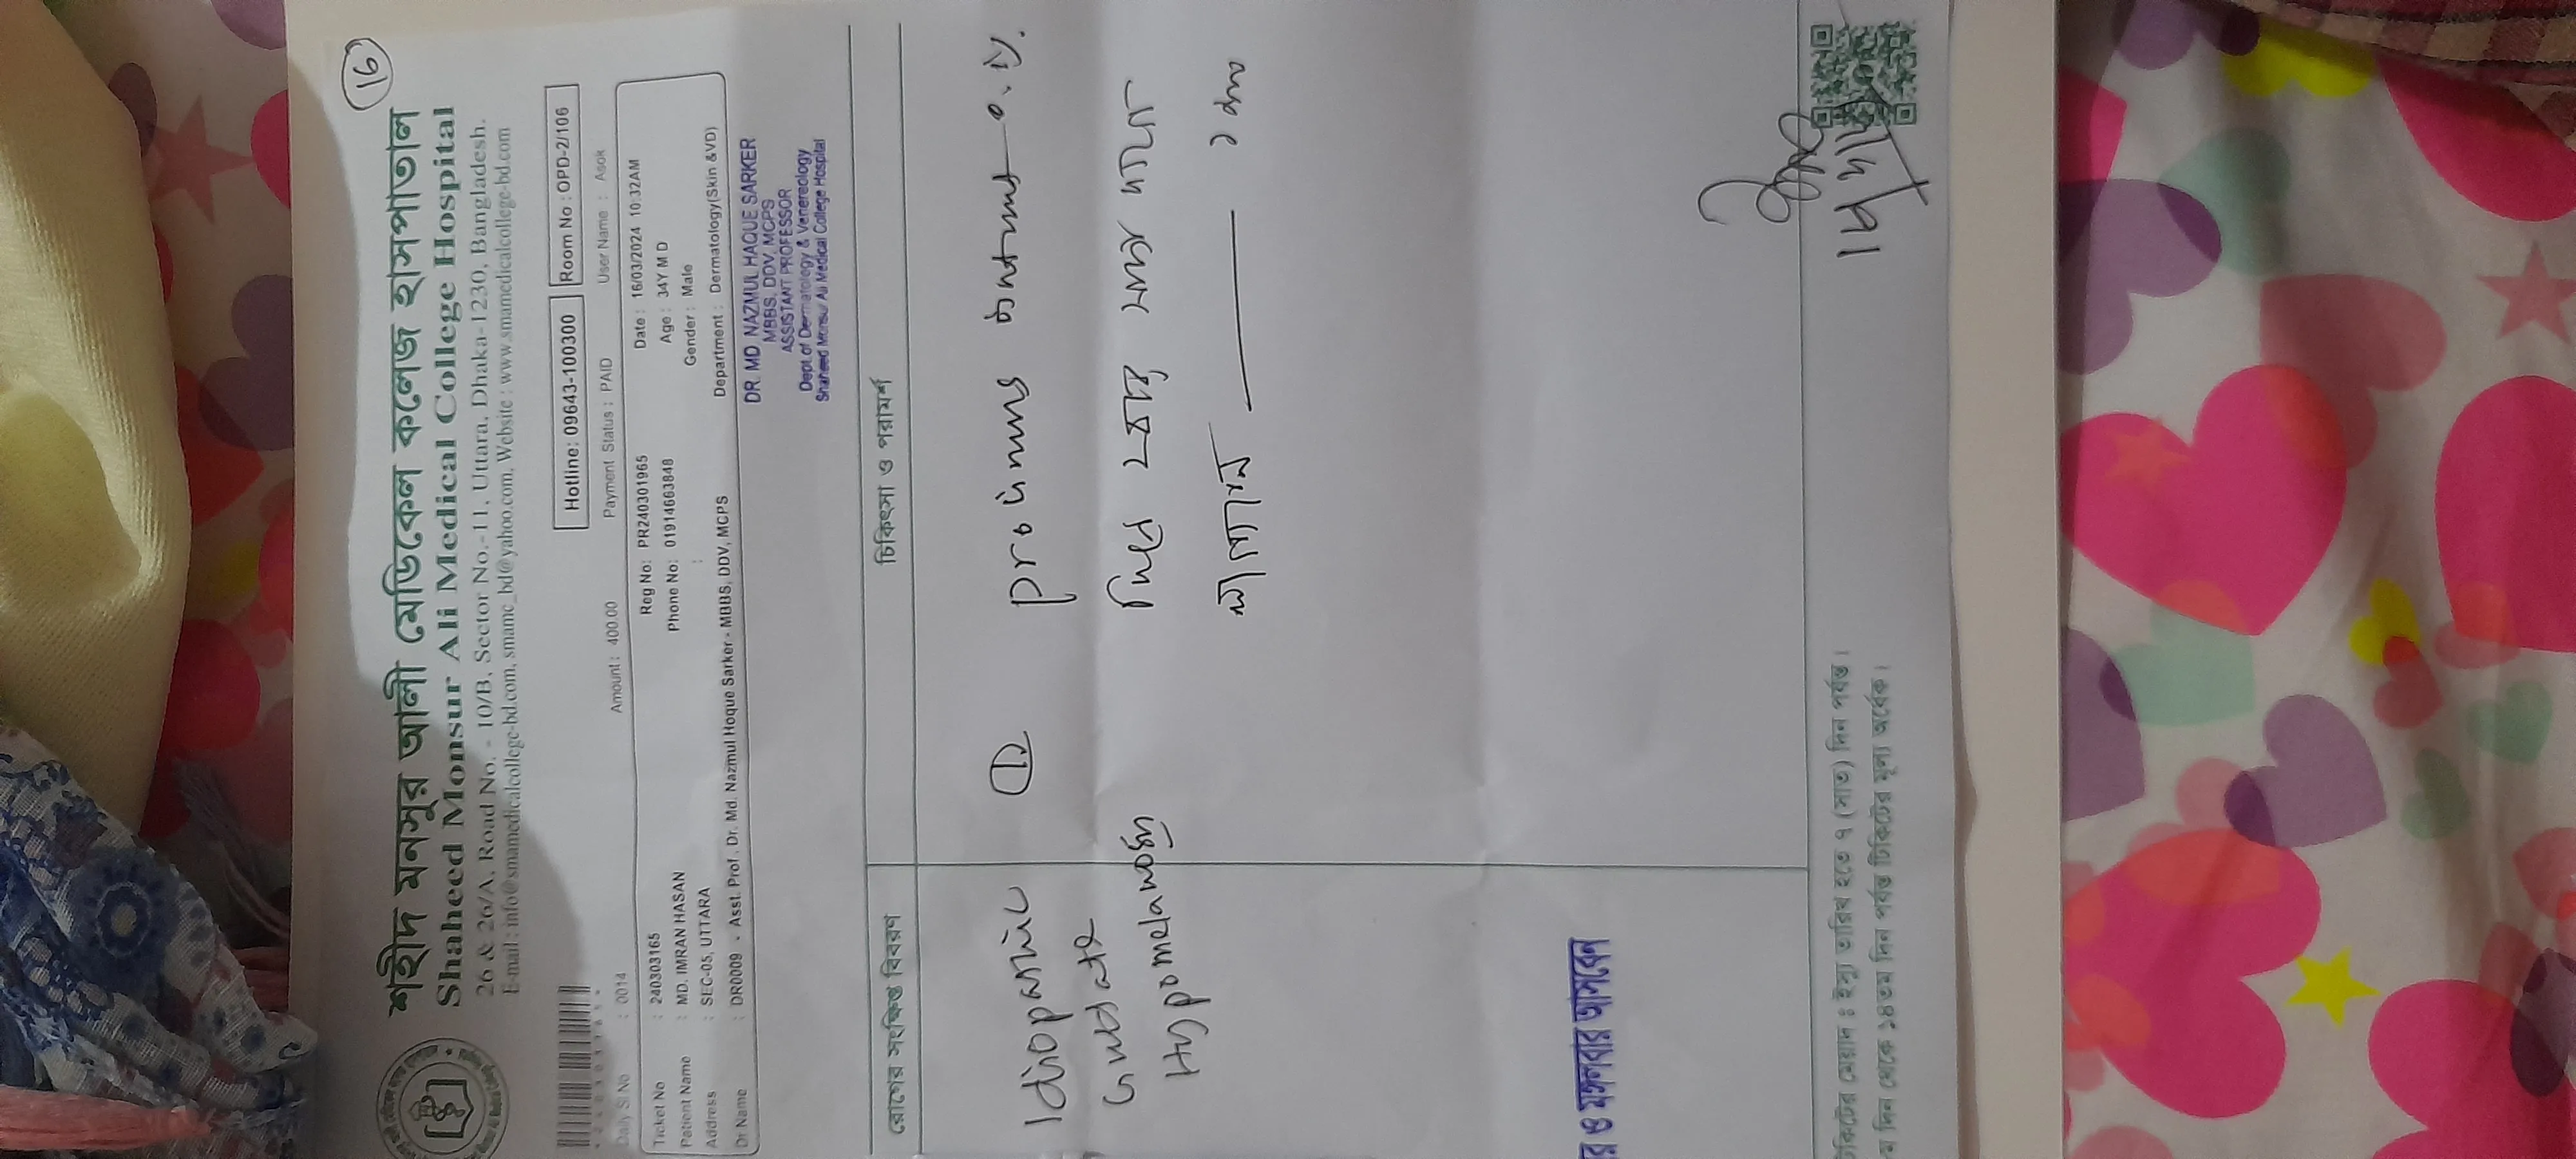 16
শহীদ মনসুর আলী মেডিকেল কলেজ হাসপাতাল
Shaheed Monsur Ali Medical College Hospital
26 & 26/A, Road No. - 10/B, Sector No.-11, Uttara, Dhaka-1230, Bangladesh.
E-mail : info@smamedicalcollege-bd.com, smamc_bd@yahoo.com, Website : www.smamedicalcollege-bd.com
Hotline: 09643-100300 Room No : OPD-2/106
Daily Sl No : 0014 Amount : 400.00 Payment Status : PAID User Name : Asok
Ticket No : 240303165 Reg No: PR240301965 Date : 16/03/2024 10:32AM
Patient Name : MD. IMRAN HASAN Phone No: 01914663848 Age : 34Y M D
Address : SEC-05, UTTARA : Gender : Male
Dr Name : DR0009 - Asst. Prof. Dr. Md. Nazmul Hoque Sarker - MBBS, DDV, MCPS Department : Dermatology(Skin &VD)
DR. MD. NAZMUL HAQUE SARKER
MBBS, DDV, MCPS
ASSISTANT PROFESSOR
Dept. of Dermatology & Venereology
Shaheed Monsur Ali Medical College Hospital
রোগের সংক্ষিপ্ত বিবরণ চিকিৎসা ও পরামর্শ
Idiopathic
Guttate
Hypomelanosis
1
ointment
র ও মঙ্গলবার আসবেন
কিটের মেয়াদ : ইস্যু তারিখ হতে ৭ (সাত) দিন পর্যন্ত।
ম দিন থেকে ১৪তম দিন পর্যন্ত টিকিটের মূল্য অর্ধেক।